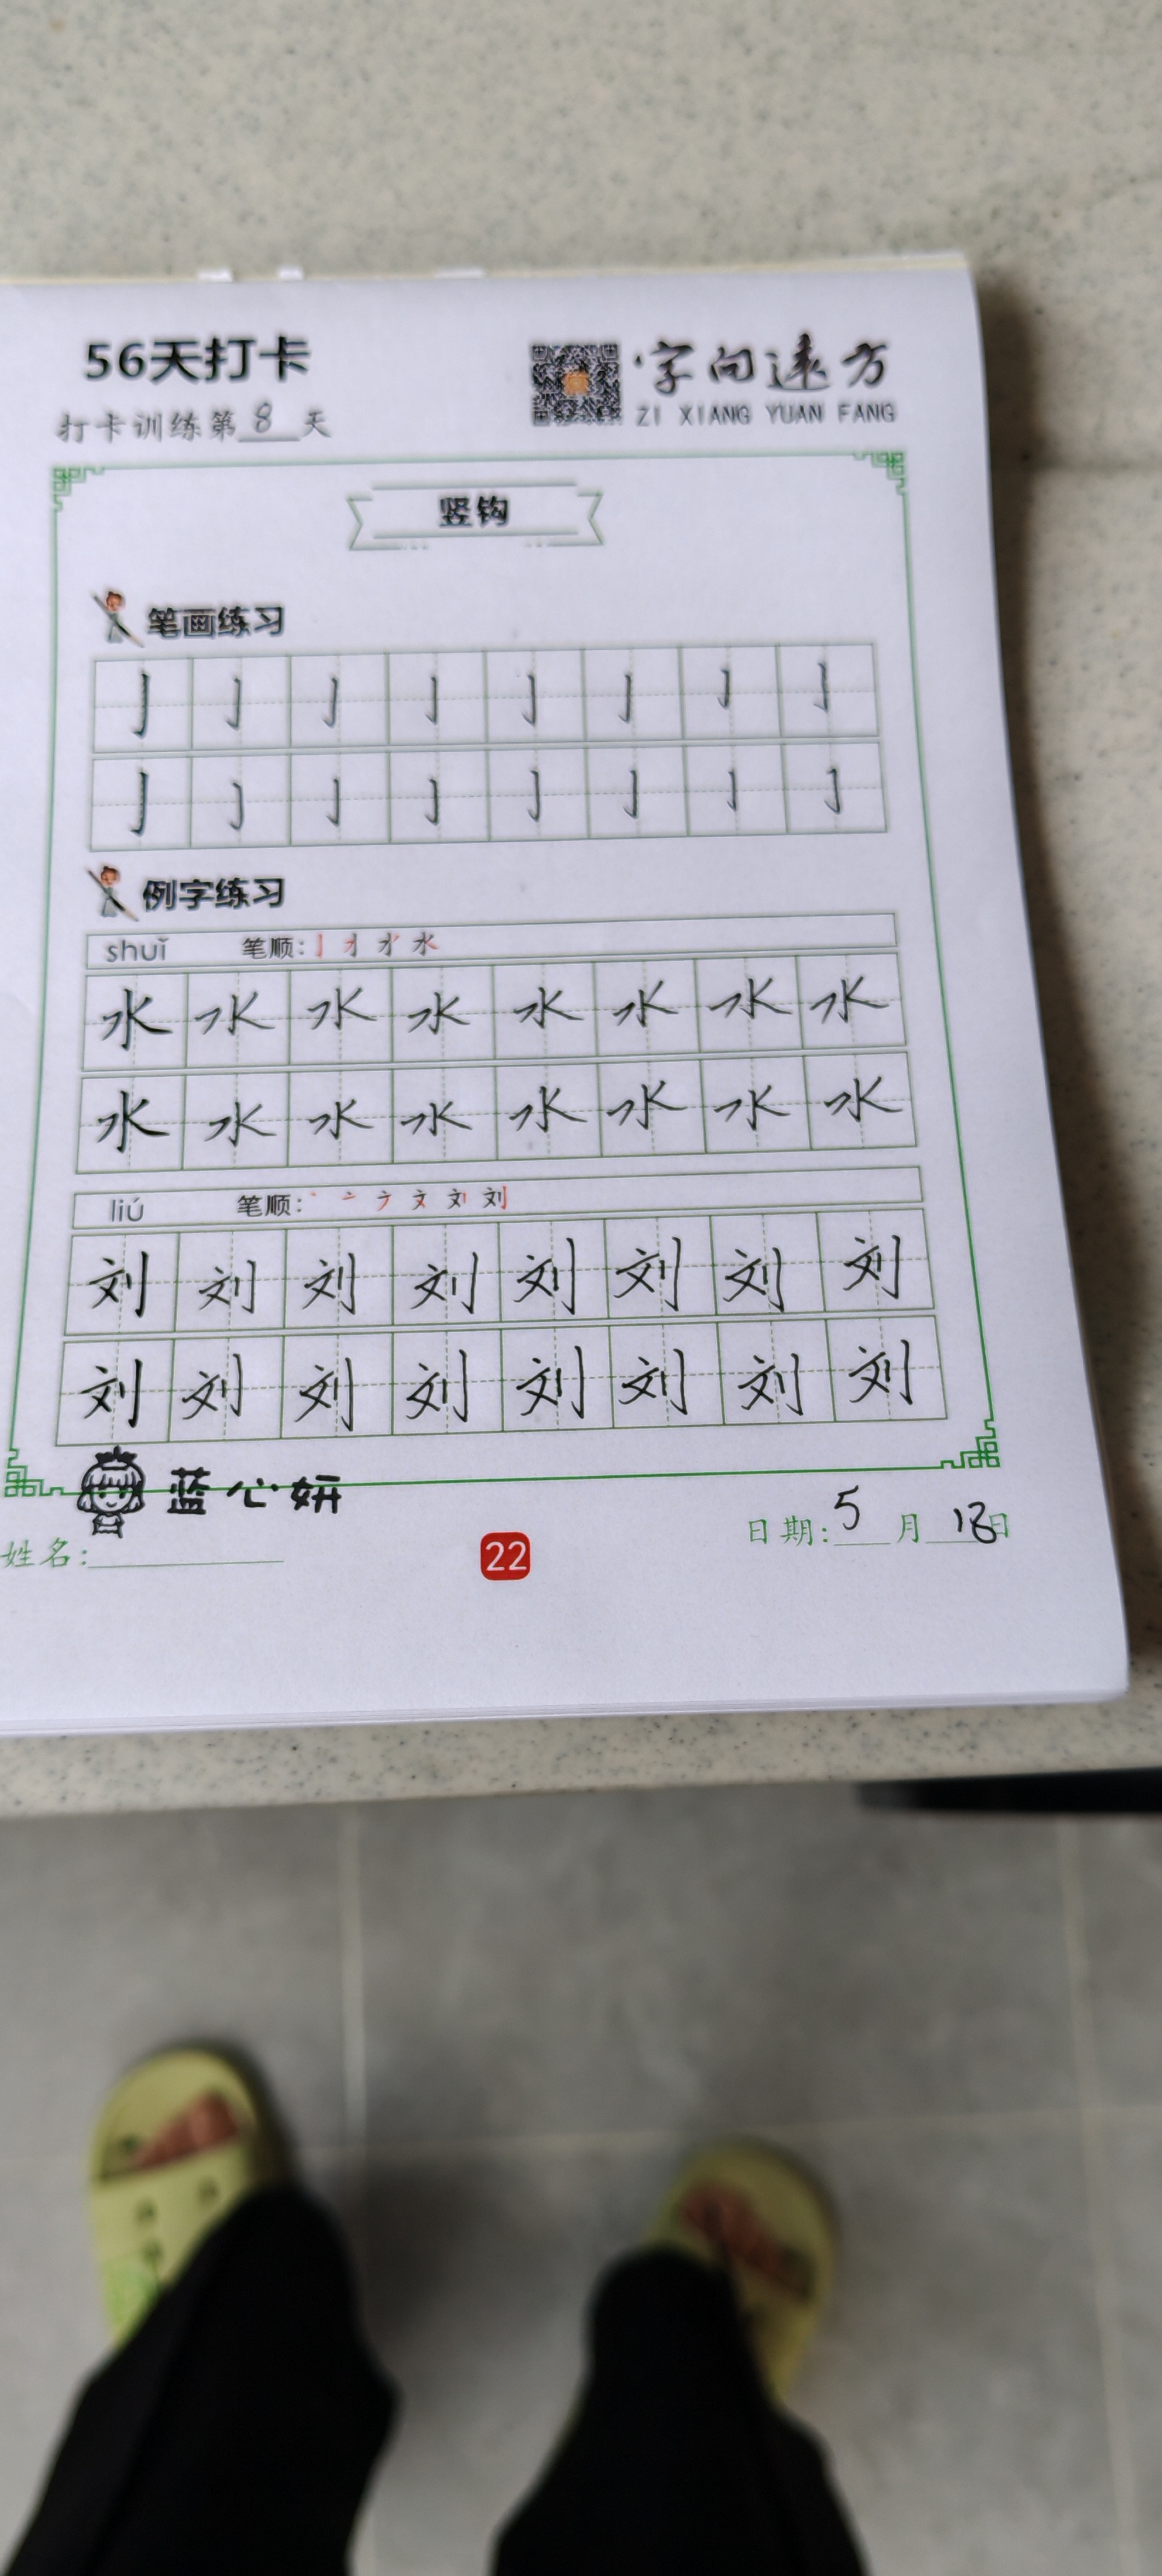 56天打卡
字向远方
ZI XIANG YUAN FANG
打卡训练第8天
竖钩
笔画练习
亅 亅 亅 亅 亅 亅 亅 亅
亅 亅 亅 亅 亅 亅 亅 亅
例字练习
shuǐ 笔顺:
水 水 水 水 水 水 水 水
水 水 水 水 水 水 水 水
liú 笔顺: 刘
刘 刘 刘 刘 刘 刘 刘 刘
刘 刘 刘 刘 刘 刘 刘 刘
蓝心妍
姓名:
22
日期:5月18日